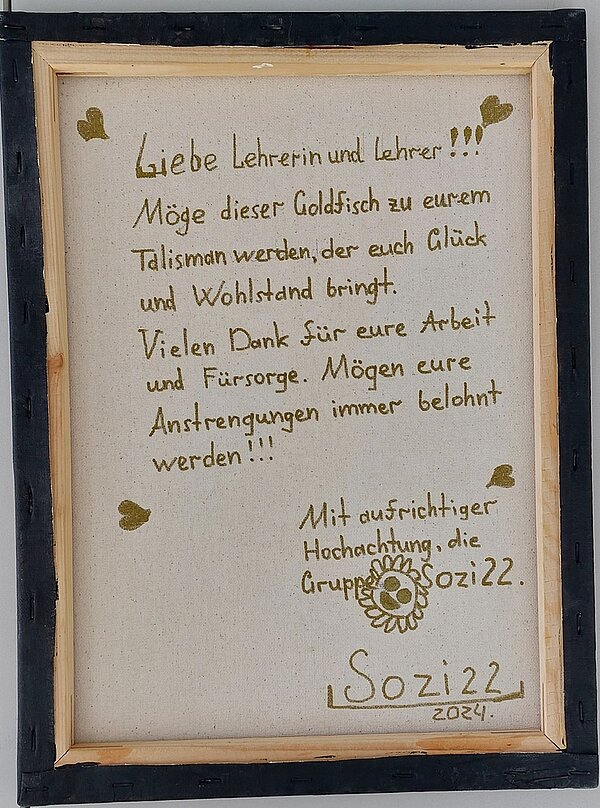 Liebe Lehrerin und Lehrer!!!
Möge dieser Goldfisch zu eurem
Talisman werden, der euch Glück
und Wohlstand bringt.
Vielen Dank für eure Arbeit
und Fürsorge. Mögen eure
Anstrengungen immer belohnt
werden!!!
Mit aufrichtiger
Hochachtung, die
Gruppe Sozi22.
Sozi22
2024.